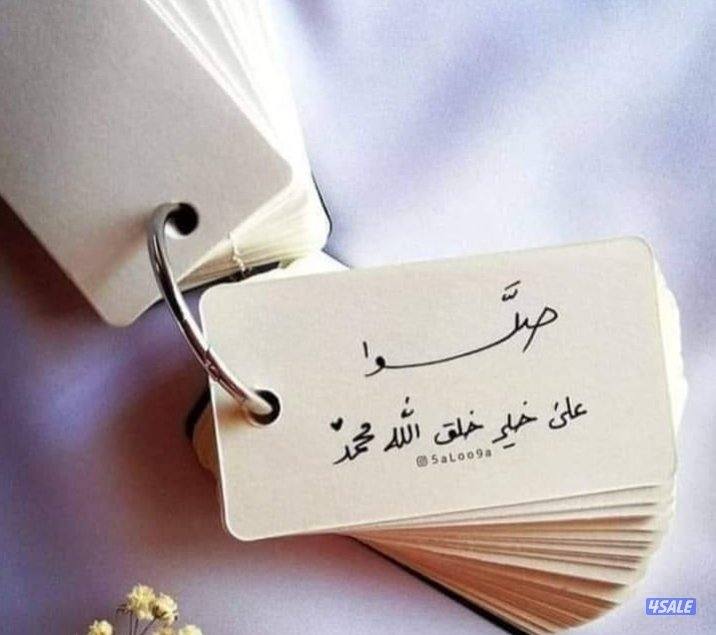 صلَّوا
على خير خلق الله محمد
5aLoo9a
4SALE